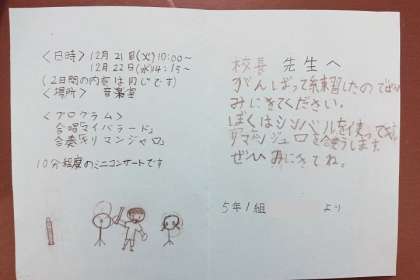 <日時> 12月21日(火)10:00〜
12月22日(水)14:15〜
(2日間の内容は同じです)
<場所> 音楽室
<プログラム>
合唱『マイバラード』
合奏『キリマンジャロ』
10分程度のミニコンサートです
校長 先生へ
がんばって練習したのでぜひ
みにきてください。
ぼくはシンバルを使って
キリマンジャロを合そうします。
ぜひ みにきてね。
5年1組 より